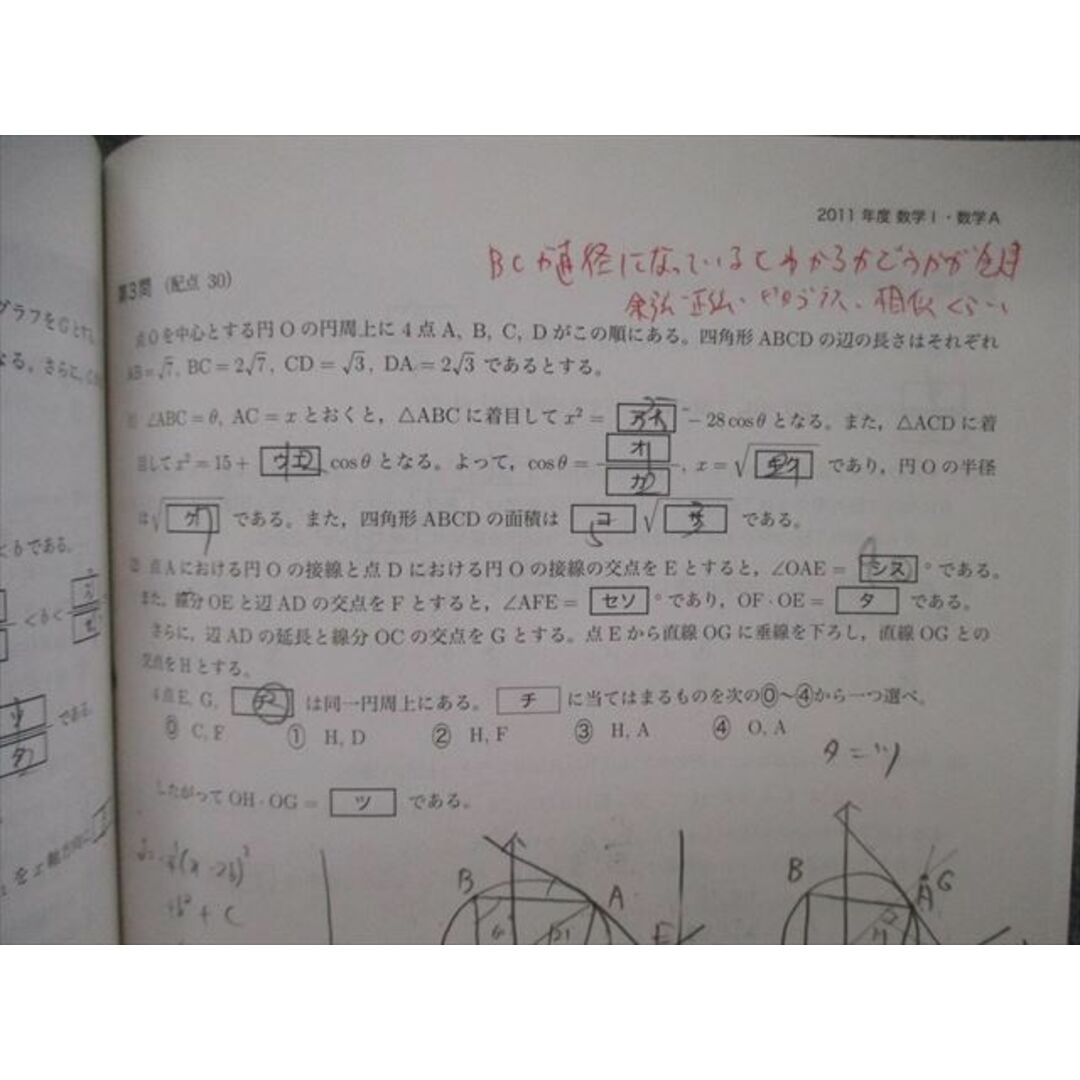 2011 年度 数学Ⅰ・数学A
BCが直径になっているとわかるかどうかが
余弦 正弦
第3問 (配点 30)
点Oを中心とする円Oの円周上に4点A, B, C, Dがこの順にある。四角形ABCDの辺の長さはそれぞれ
AB=√7, BC=2√7, CD=√3, DA=2√3 であるとする。
∠ABC=θ, AC=x とおくと，△ABCに着目して x²= アイ −28cosθ となる。また，△ACDに着
目して x²=15+ ウエ cosθ となる。よって，cosθ= オ/カ , x=√ キク であり，円Oの半径
は√ ケ である。また，四角形ABCDの面積は コ √ サ である。
② 点Aにおける円Oの接線と点Dにおける円Oの接線の交点をEとすると，∠OAE= シス °である。
また，線分OEと辺ADの交点をFとすると，∠AFE= セソ °であり，OF・OE= タ である。
さらに，辺ADの延長と線分OCの交点をGとする。点Eから直線OGに垂線を下ろし，直線OGとの
交点をHとする。
4点E, G, チ は同一円周上にある。 チ に当てはまるものを次の⓪〜④から一つ選べ。
⓪ C, F ① H, D ② H, F ③ H, A ④ O, A
タ=ツ
したがってOH・OG= ツ である。
B A E
B A G
グラフをGとする
なる。さらに，
くbである。
<b<
である。
をx軸方向に